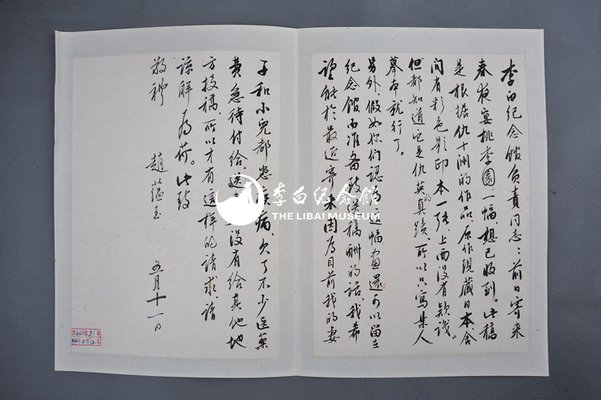 李白纪念馆负责同志：前日寄来
春夜宴桃李园一幅想已收到。此稿
是根据仇十洲的作品，原作现藏日本，舍
间有彩色影印本一张，上面没有款识。
但都知道它是仇英的真蹟，所以只写某人
摹本就行了。
另外假如你们认为这幅画还可以留在
纪念馆而准备致送稿酬的话，我希
望能於最近寄来，因为目前我的妻
子和小儿都患疾病，欠了不少医药
费急待付给，没有给其他地
方投稿，所以才有这样的请求，请
谅解为荷。此致
敬礼
赵蕴玉
五月十一日
李白纪念馆
THE LIBAI MUSEUM